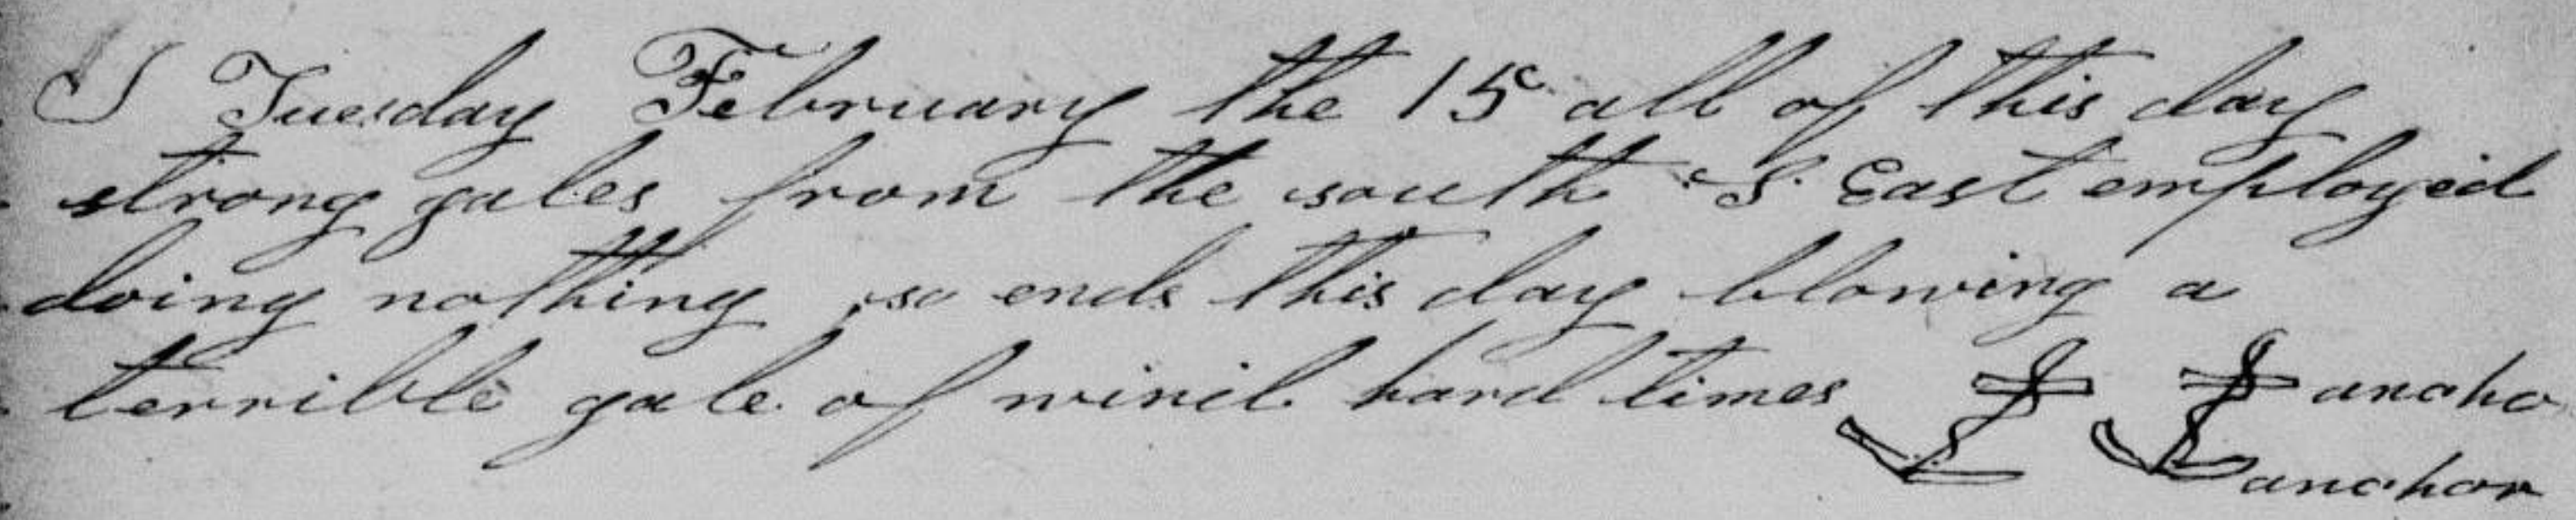 J Tuesday February the 15 all of this day
strong gales from the south S. East employed
doing nothing so ends this day blowing a
terrible gale of wind hard times ancho
anchor